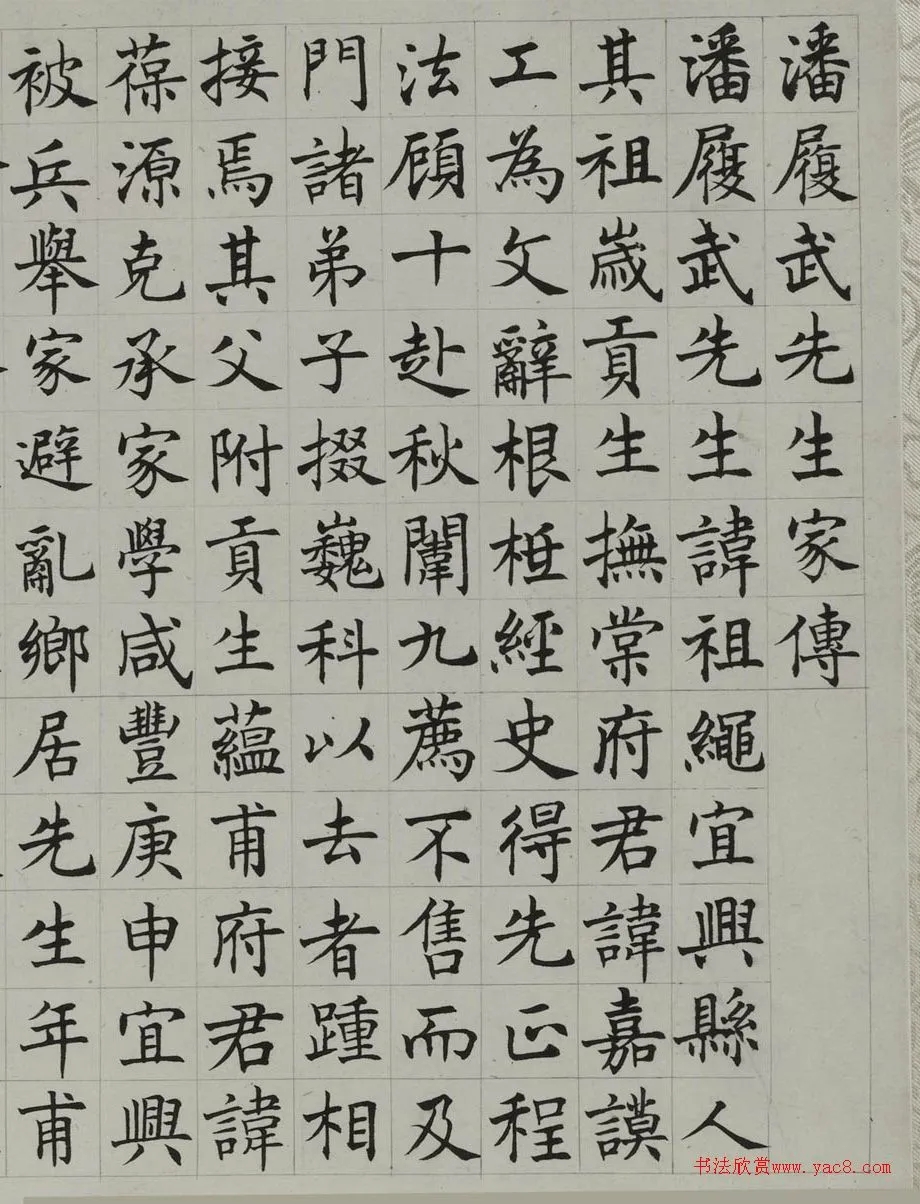 潘履武先生家傳
潘履武先生諱祖繩宜興縣人
其祖歲貢生撫棠府君諱嘉謨
工為文辭根柢經史得先正程
法顧十赴秋闈九薦不售而及
門諸弟子掇巍科以去者踵相
接焉其父附貢生蘊甫府君諱
葆源克承家學咸豐庚申宜興
被兵舉家避亂鄉居先生年甫
书法欣赏www.yac8.com